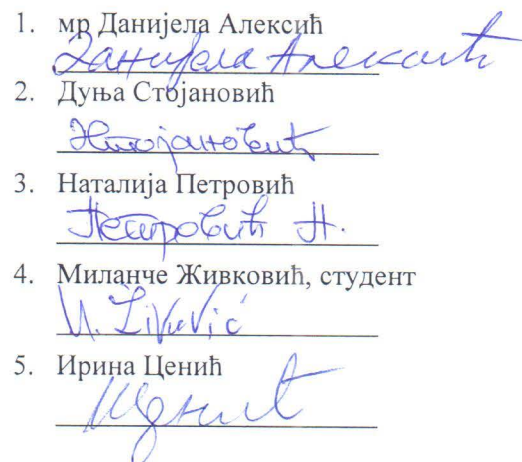 1. мр Данијела Алексић
Данијела Алексић
2. Дуња Стојановић
Стојановић
3. Наталија Петровић
Петровић Н.
4. Миланче Живковић, студент
5. Ирина Ценић